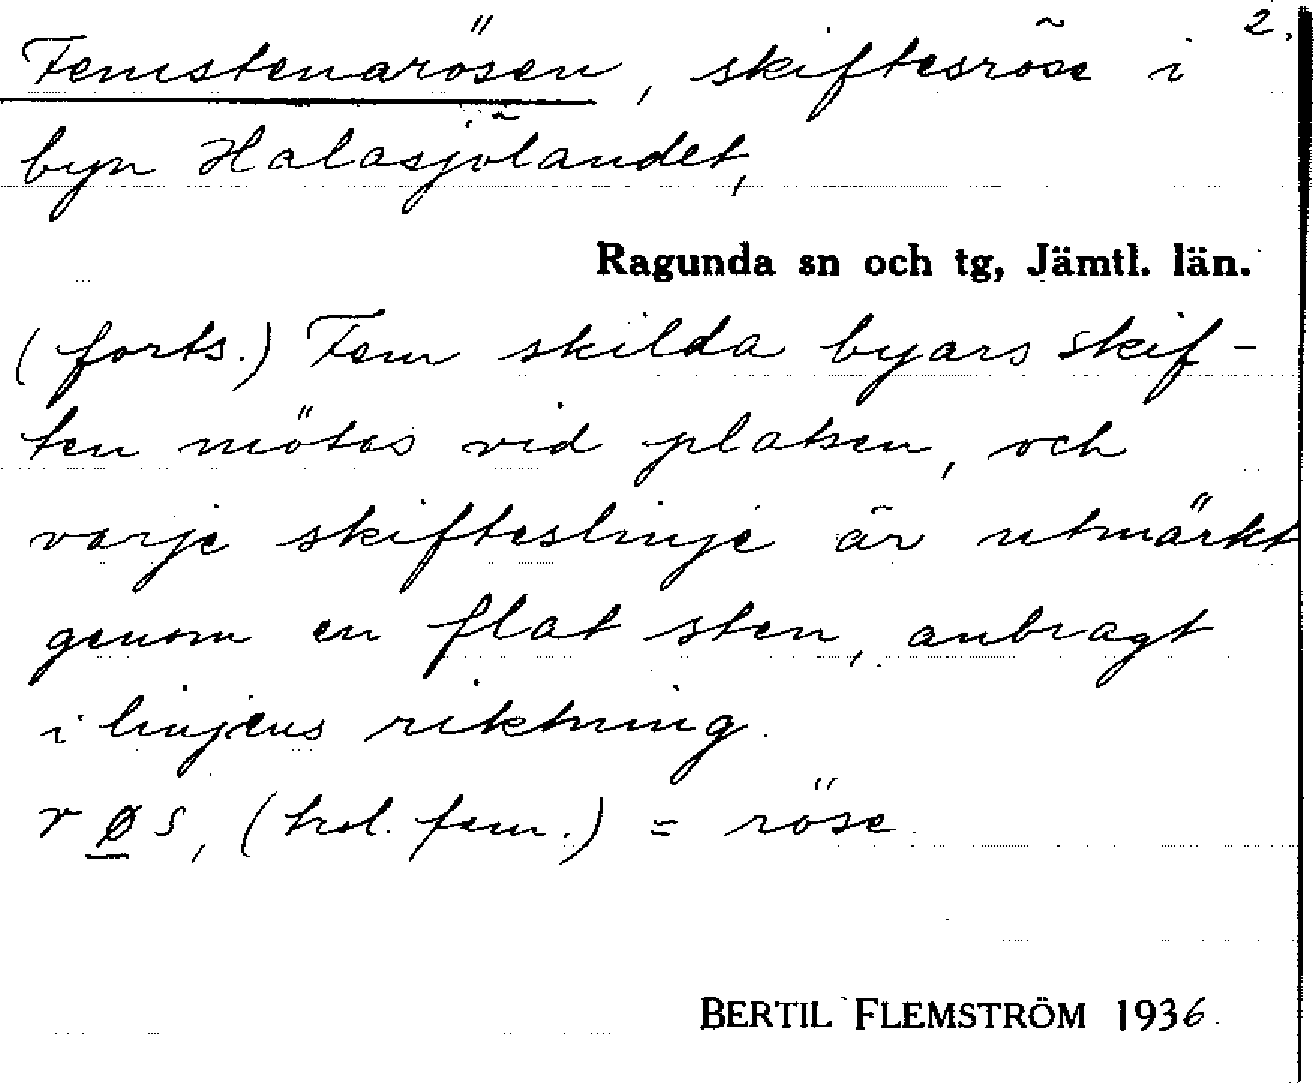 2.
Femstenarösen, skiftesröse i
byn Halasjölandet,
Ragunda sn och tg, Jämtl. län.
(forts.) Fem skilda byars skif-
ten mötas vid platsen, och
varje skifteslinje är utmärkt
genom en flat sten, anbragt
i linjens riktning.
r ø s, (trol. fem.) = röse.
BERTIL FLEMSTRÖM 1936.